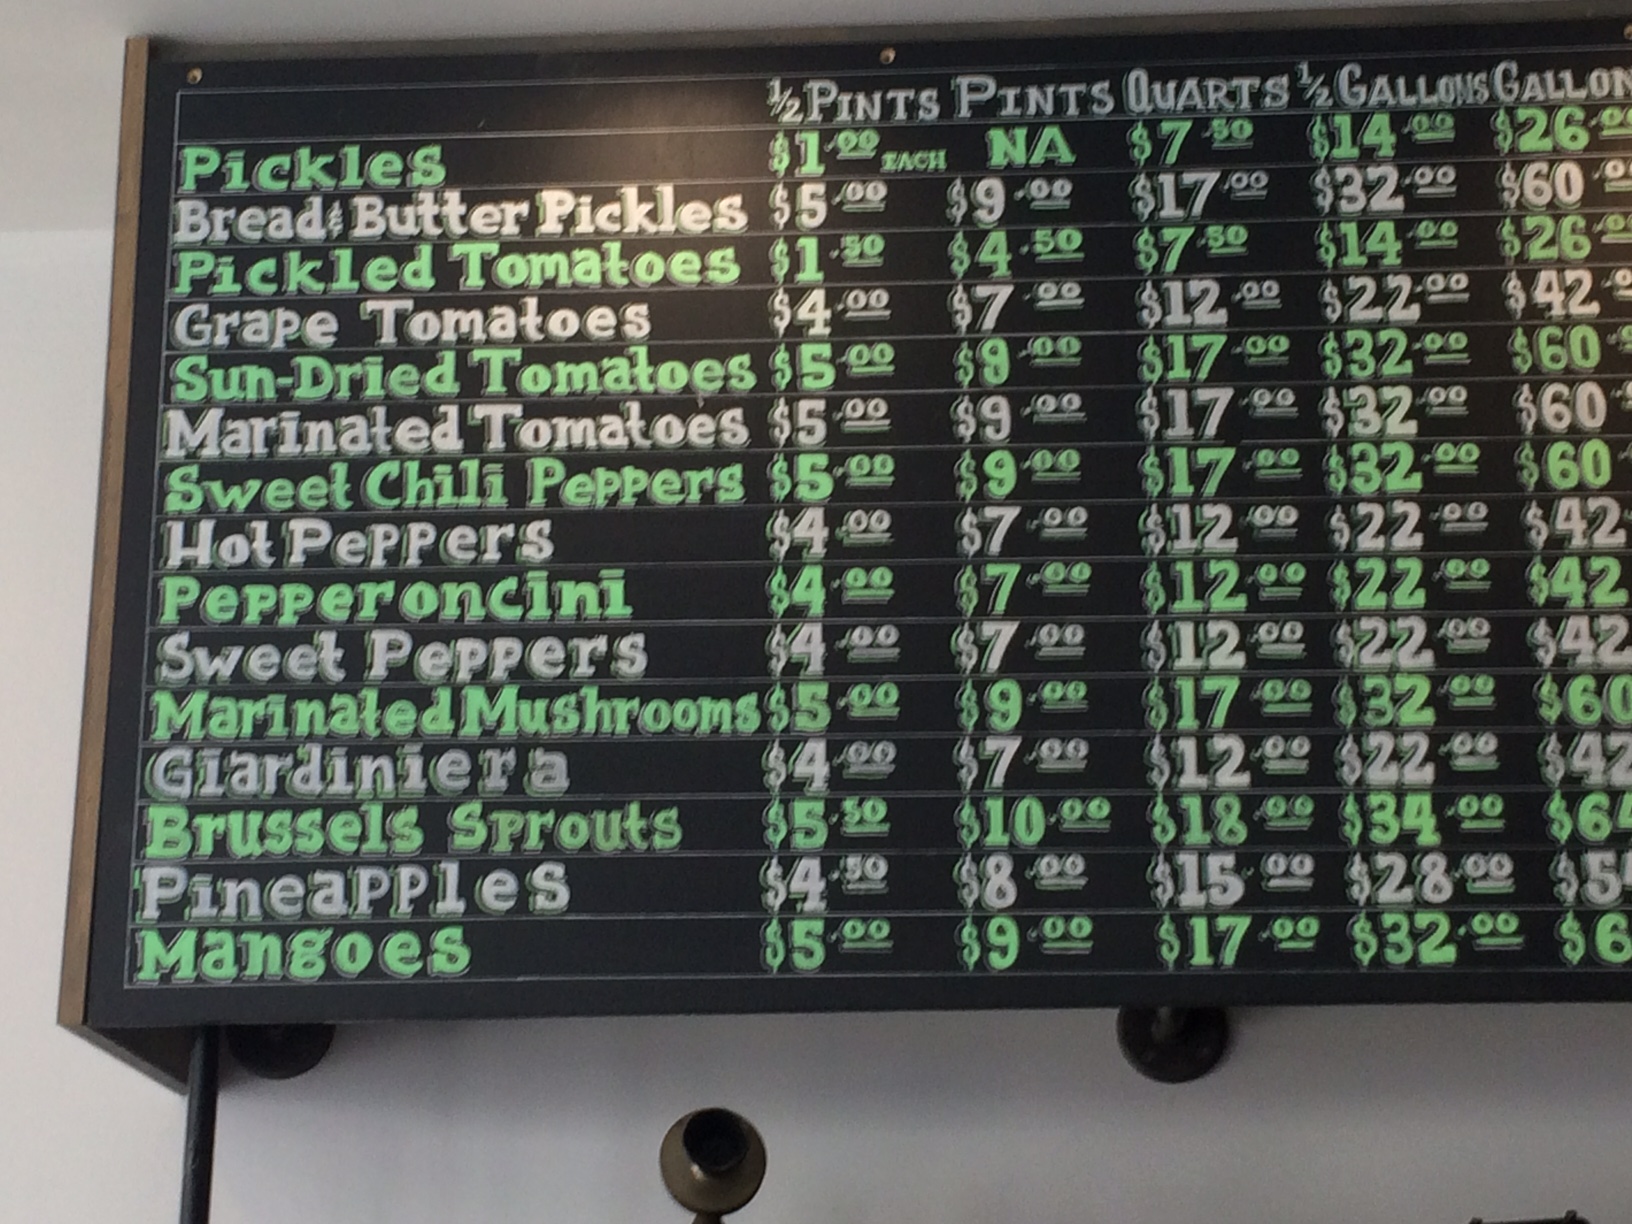 ½ PINTS PINTS QUARTS ½ GALLONS GALLON
Pickles $1.00 EACH NA $7.50 $14.00 $26.00
Bread & Butter Pickles $5.00 $9.00 $17.00 $32.00 $60
Pickled Tomatoes $1.50 $4.50 $7.50 $14.00 $26.00
Grape Tomatoes $4.00 $7.00 $12.00 $22.00 $42
Sun-Dried Tomatoes $5.00 $9.00 $17.00 $32.00 $60
Marinated Tomatoes $5.00 $9.00 $17.00 $32.00 $60
Sweet Chili Peppers $5.00 $9.00 $17.00 $32.00 $60
Hot Peppers $4.00 $7.00 $12.00 $22.00 $42
Pepperoncini $4.00 $7.00 $12.00 $22.00 $42
Sweet Peppers $4.00 $7.00 $12.00 $22.00 $42
Marinated Mushrooms $5.00 $9.00 $17.00 $32.00 $60
Giardiniera $4.00 $7.00 $12.00 $22.00 $42
Brussels Sprouts $5.50 $10.00 $18.00 $34.00 $64
Pineapples $4.50 $8.00 $15.00 $28.00 $54
Mangoes $5.00 $9.00 $17.00 $32.00 $6